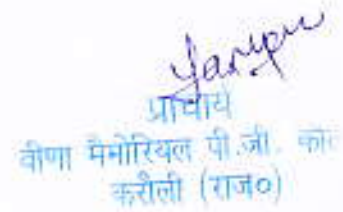 प्राचार्य
वीणा मैमोरियल पी.जी. कॉल
करौली (राज०)